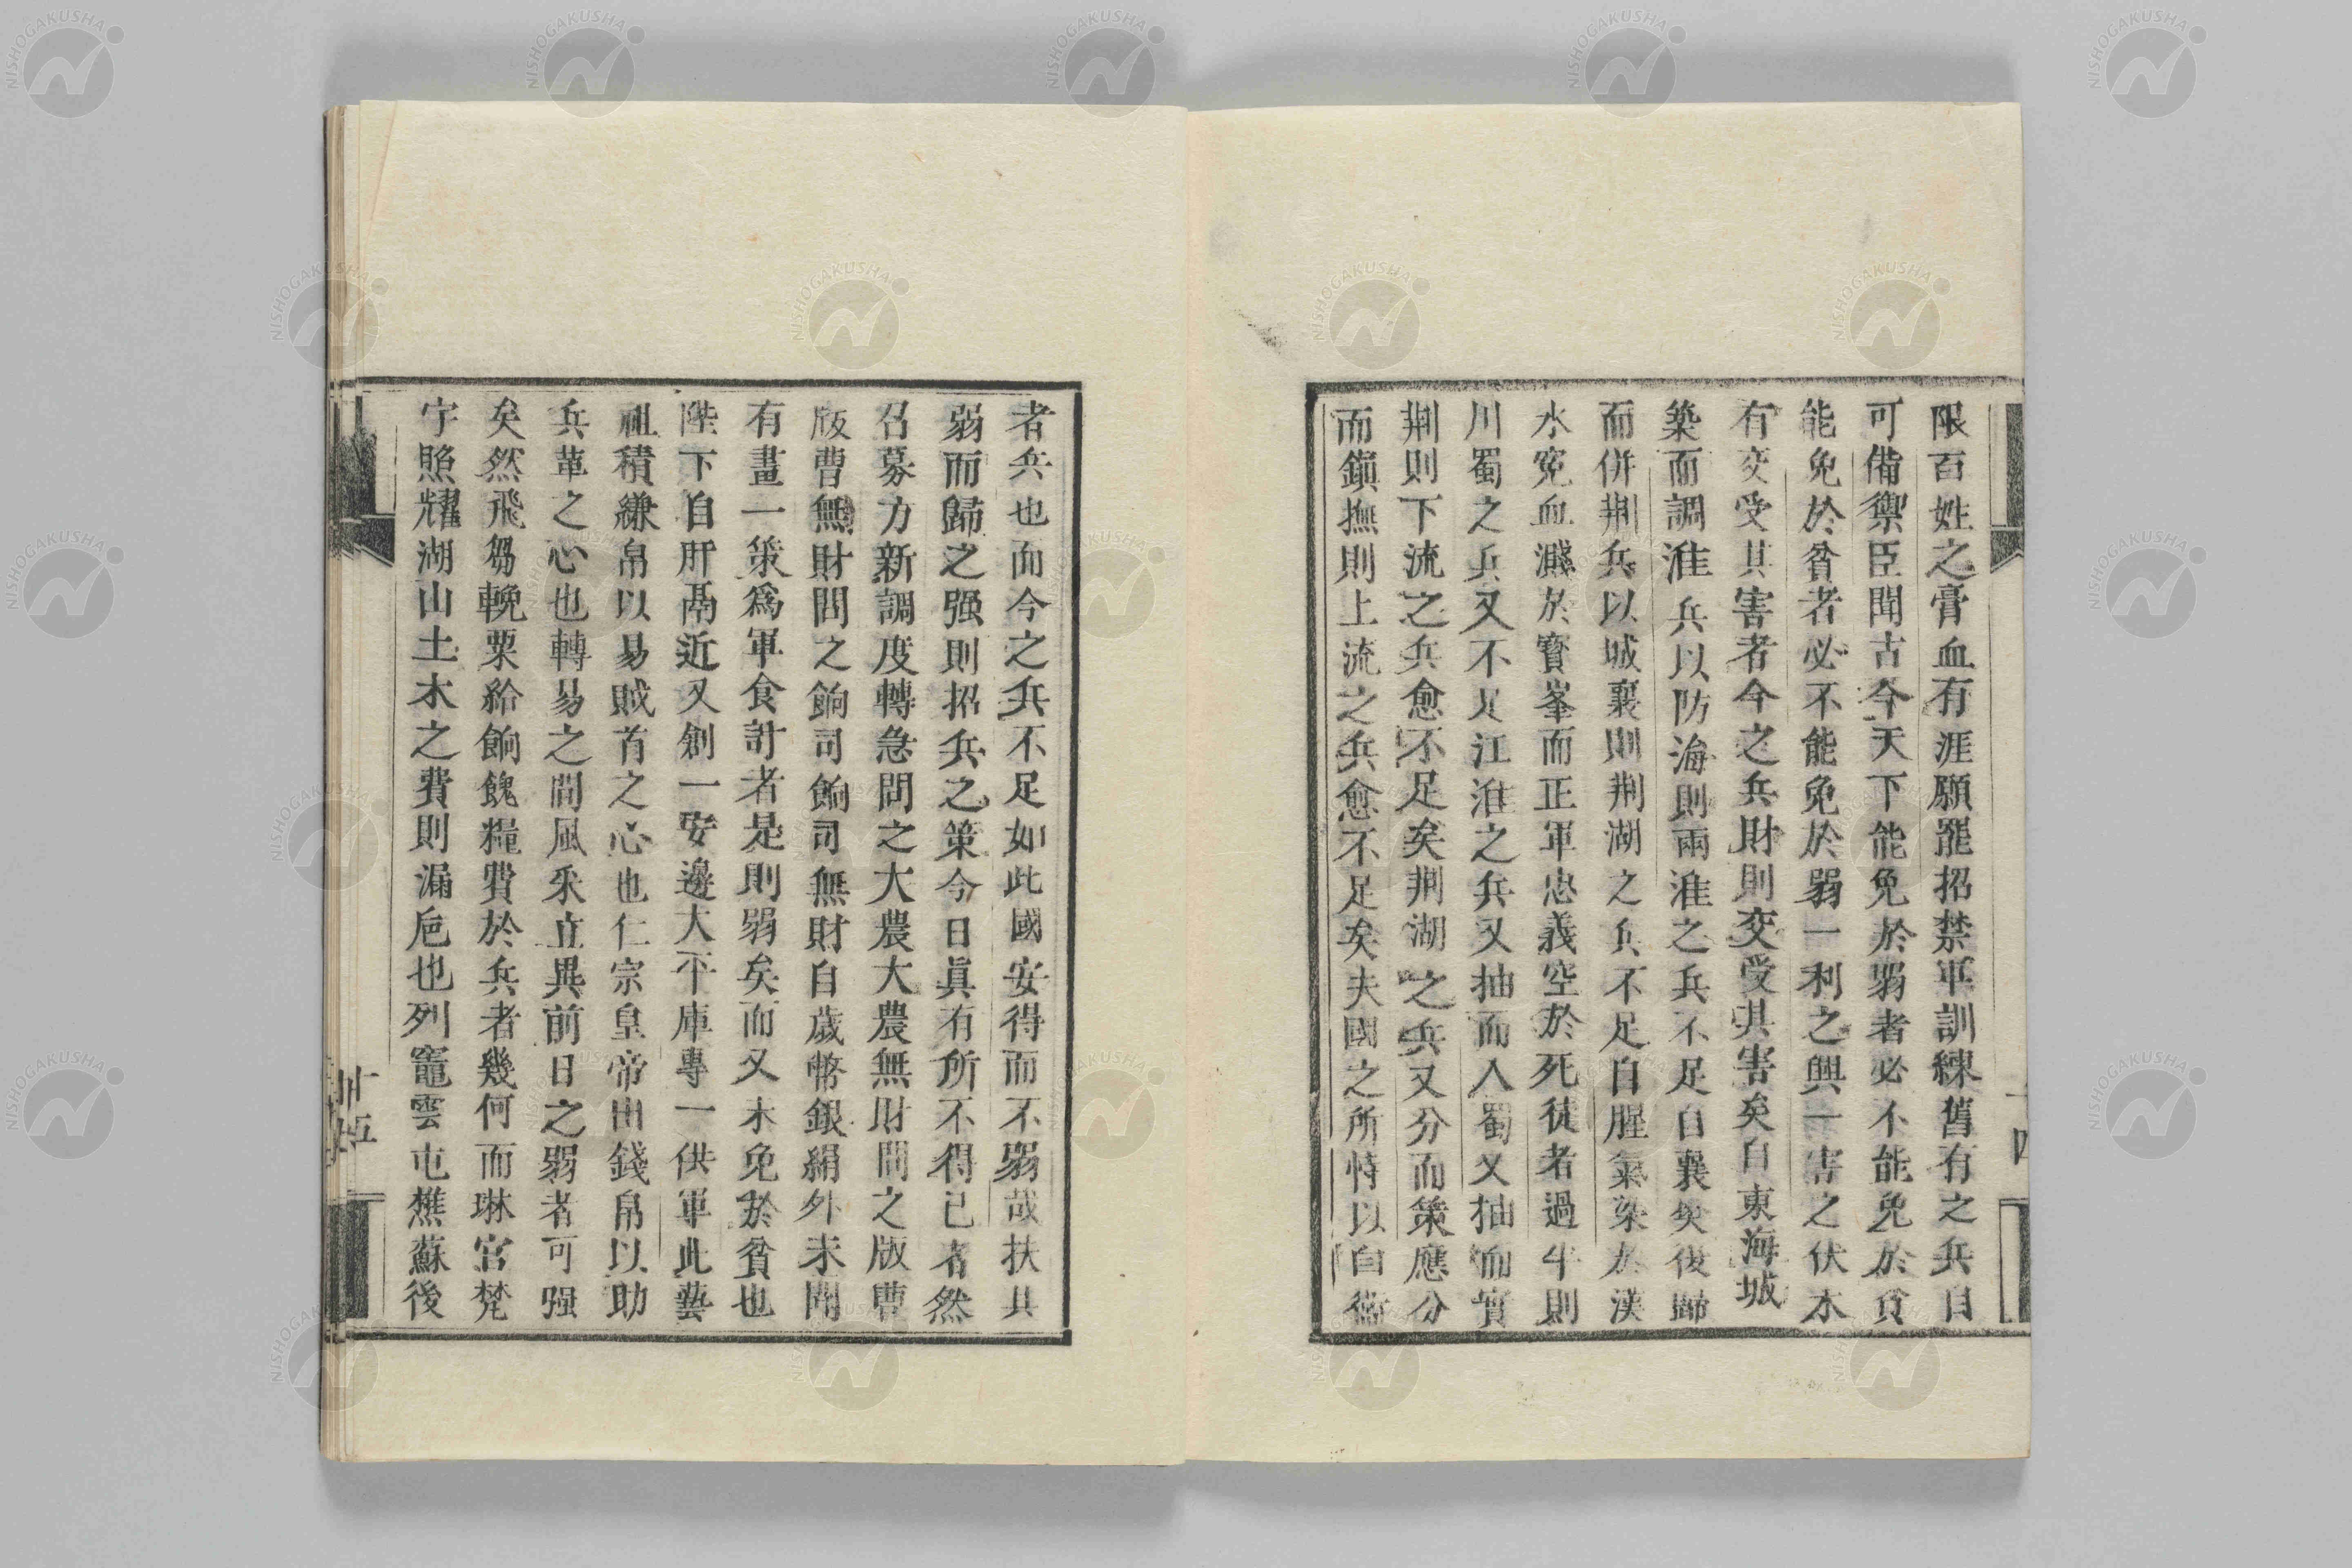 限百姓之膏血有涯願罷招禁軍訓練舊有之兵自
可備禦臣聞古今天下能免於弱者必不能免於貧
能免於貧者必不能免於弱一利之興一害之伏未
有交受其害者今之兵財則交受其害矣自東海城
築而調淮兵以防海則兩淮之兵不足自襄樊復歸
而併荆兵以城襄則荆湖之兵不足自腥氣染於漢
水冤血濺於寳峯而正軍忠義空於死徒者過半則
川蜀之兵又不足江淮之兵又抽而入蜀又抽而實
荆則下流之兵愈不足矣荆湖之兵又分而策應分
而鎭撫則上流之兵愈不足矣夫國之所恃以自衞
者兵也而今之兵不足如此國安得而不弱哉扶其
弱而歸之强則招兵之策今日眞有所不得已者然
召募方新調度轉急問之大農大農無財問之版曹
版曹無財問之餉司餉司無財自歲幣銀絹外未聞
有畫一策爲軍食計者是則弱矣而又未免於貧也
陛下自肝鬲近又創一安邊大平庫專一供軍此藝
祖積縑帛以易賊首之心也仁宗皇帝出錢帛以助
兵革之心也轉易之間風采立異前日之弱者可强
矣然飛芻輓粟給餉餽糧費於兵者幾何而琳宮梵
宇照耀湖山土木之費則漏巵也列竈雲屯樵蘇後
四
廿五
NISHOGAKUSHA